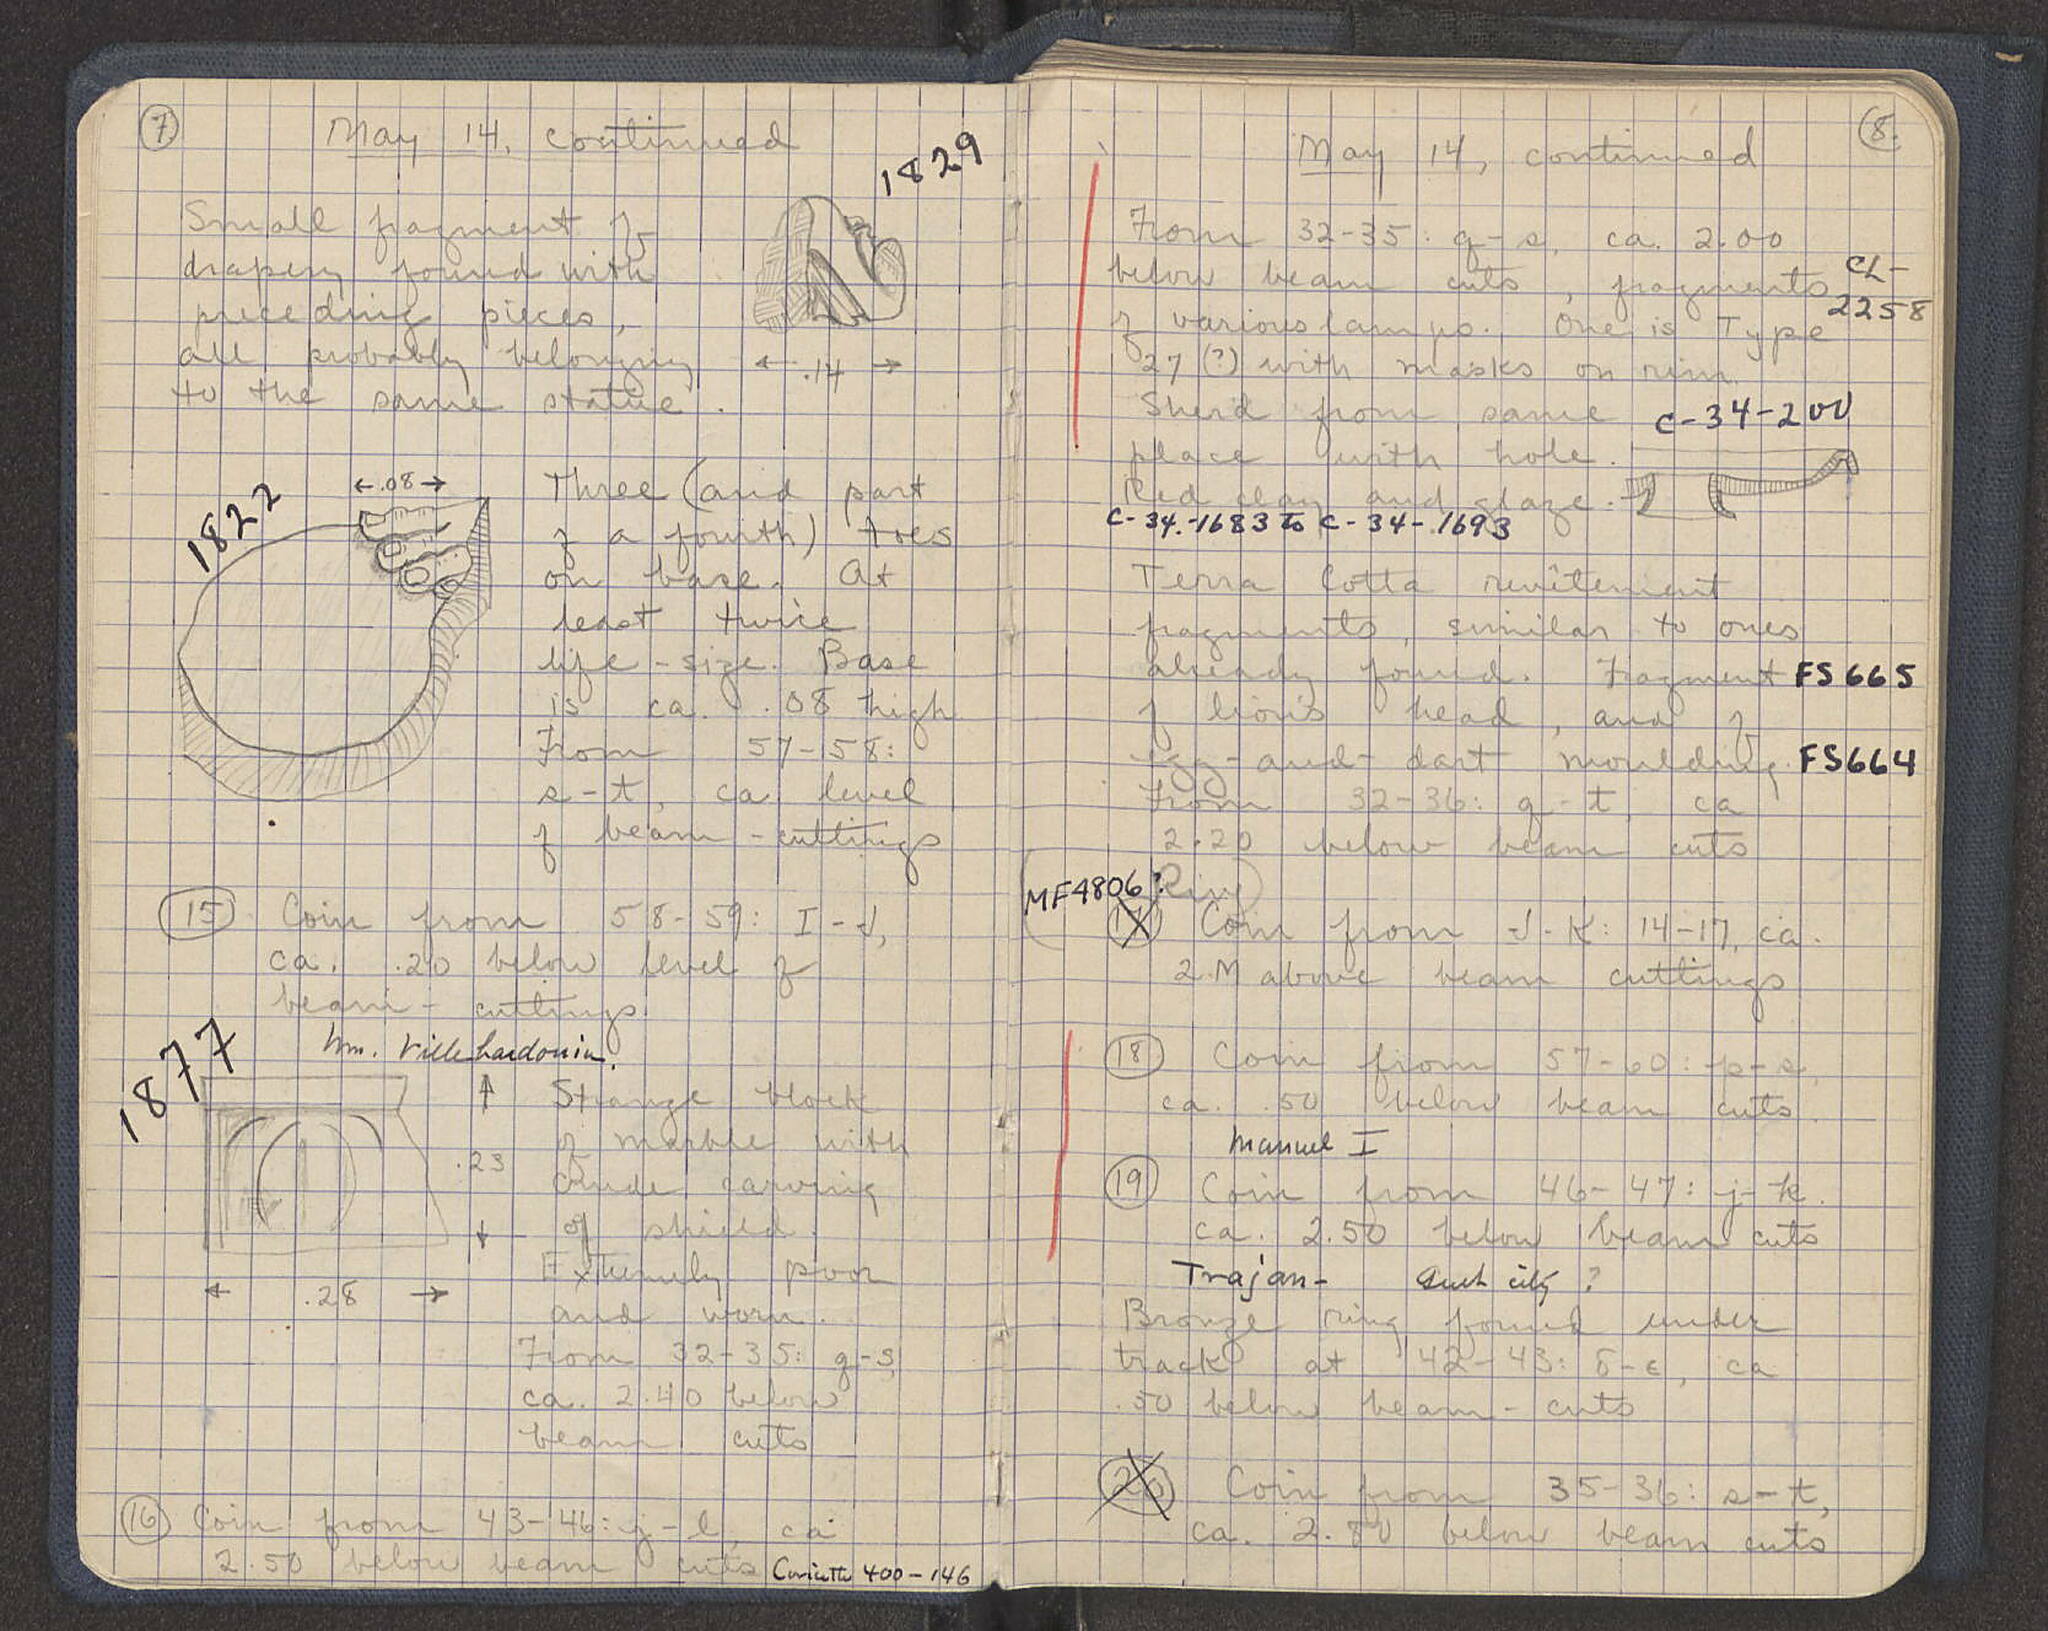 7
May 14, continued
1829
Small fragment of
drapery found with
preceding pieces,
all probably belonging
to the same statue.
.14
1822
.08
Three (and part
of a fourth) toes
on base. At
least twice
life-size. Base
is ca. .08 high
From 57-58:
s-t, ca level
of beam-cuttings
15 Coin from 58-59: I-J,
ca. .20 below level of
beam-cuttings.
Wm. Villehardouin.
1877
Strange block
of marble with
crude carving
of shield.
Extremely poor
and worn.
From 32-35: q-s,
ca. 2.40 below
beam cuts
.23
.28
16 Coin from 43-46: j-l, ca
2.50 below beam cuts Corinth 400-146
8.
May 14, continued
From 32-35: q-s, ca. 2.00
below beam cuts, fragments
CL-
2258
of various lamps. One is Type
27 (?) with masks on rim.
Sherd from same
C-34-200
place with hole.
Red clay and glaze.
C-34-1683 to C-34-1693
Terra Cotta revêtement
fragments, similar to ones
already found. Fragment FS665
of lion's head, and of
egg-and-dart moulding. FS664
From 32-36: q-t, ca
2.20 below beam cuts
MF4806? Ring
17 Coin from J-K: 14-17, ca.
2.M above beam cuttings
18 Coin from 57-60: p-s,
ca. .50 below beam cuts
Manuel I
19 Coin from 46-47: j-k.
ca. 2.50 below beam cuts
Trajan- city?
Bronze ring found under
track at 42-43: δ-ε, ca
.50 below beam-cuts
20 Coin from 35-36: s-t,
ca. 2.80 below beam cuts